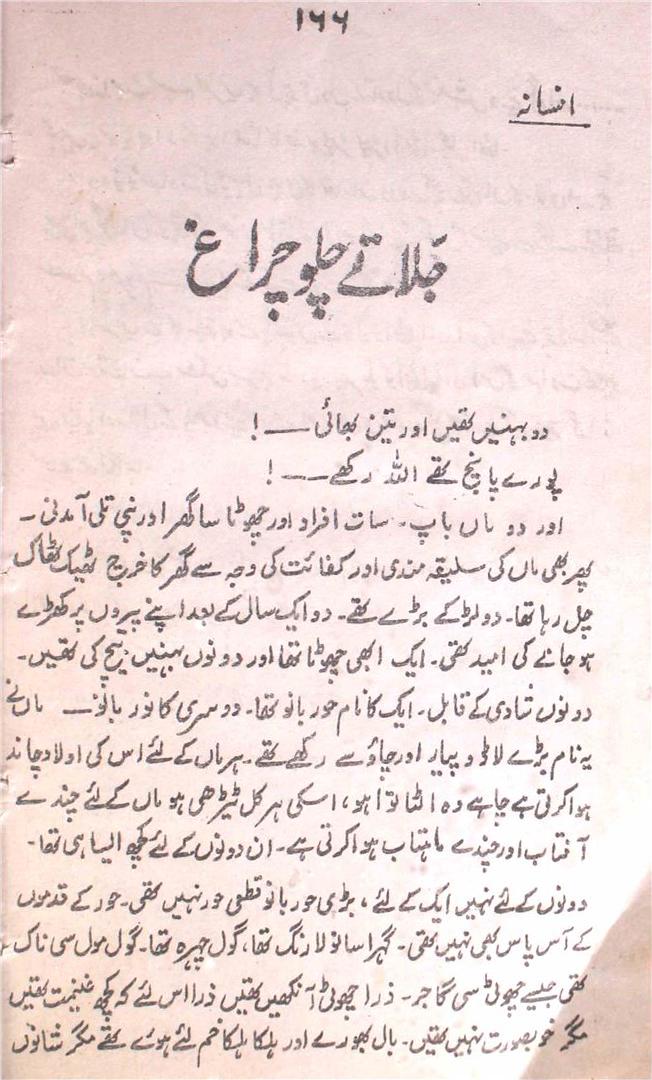 ۱۶۶
افسانہ
جلاتے چلو چراغ
دو بہنیں تھیں اور تین بھائی ــــ !
پورے پانچ تھے اللہ رکھے ــــ !
اور دو ماں باپ۔ سات افراد اور چھوٹا سا گھر اور نپی تلی آمدنی ۔
پھر بھی ماں کی سلیقہ مندی اور کفائت کی وجہ سے گھر کا خرچ ٹھیک ٹھاک
چل رہا تھا۔ دو لڑکے بڑے تھے۔ دو ایک سال کے بعد اپنے پیروں پر کھڑے
ہو جانے کی امید تھی۔ ایک ابھی چھوٹا تھا اور دونوں بہنیں بیچ کی تھیں۔
دونوں شادی کے قابل۔ ایک کا نام حور بانو تھا۔ دوسری کا نور بانو ــــ ماں نے
یہ نام بڑے لاڈ و پیار اور چاؤ سے رکھے تھے۔ ہر ماں کے لئے اس کی اولاد چاند
ہوا کرتی ہے چاہے وہ الٹا توا ہو، اسکی ہر کل ٹیڑھی ہو ماں کے لئے چندے
آفتاب اور چندے ماہتاب ہوا کرتی ہے۔ ان دونوں کے لئے کچھ ایسا ہی تھا۔
دونوں کے لئے نہیں ایک کے لئے، بڑی حور بانو قطعی حور نہیں تھی۔ حور کے قدموں
کے آس پاس بھی نہیں تھی۔ گہرا سانولا رنگ تھا، گول چہرہ تھا۔ گول مول سی ناک
تھی جیسے چھوٹی سی گاجر۔ ذرا چھوٹی آنکھیں تھیں ذرا اس لئے کہ کچھ غنیمت تھیں
مگر خوبصورت نہیں تھیں۔ بال بھورے اور ہلکا ہلکا خم لئے ہوئے تھے مگر شانوں